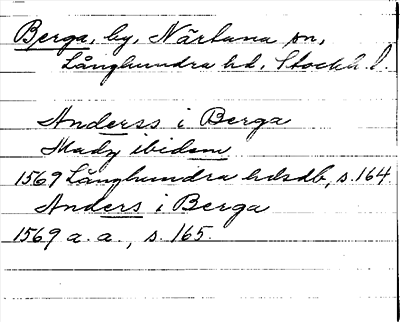 Berga, by, Närtuna sn,
Långhundra hd, Stockh. l.
Anderss i Berga
Madz ibidem
1569 Långhundra hdsdb, s. 164
Anders i Berga
1569 a. a., s. 165.